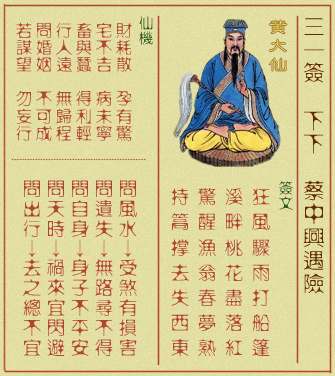 三一簽 下下 蔡中興遇險
黃大仙
簽文
狂風驟雨打船篷
溪畔桃花盡落紅
驚醒漁翁春夢熟
持篙撐去失西東
仙機
財耗散 孕有驚
宅不吉 病未寧
畜與蠶 得利輕
行人遠 無歸程
問婚姻 不可成
若謀望 勿妄行
問風水→受煞有損害
問遺失→無路尋不得
問自身→身子不平安
問天時→禍來宜閃避
問出行→去之總不宜